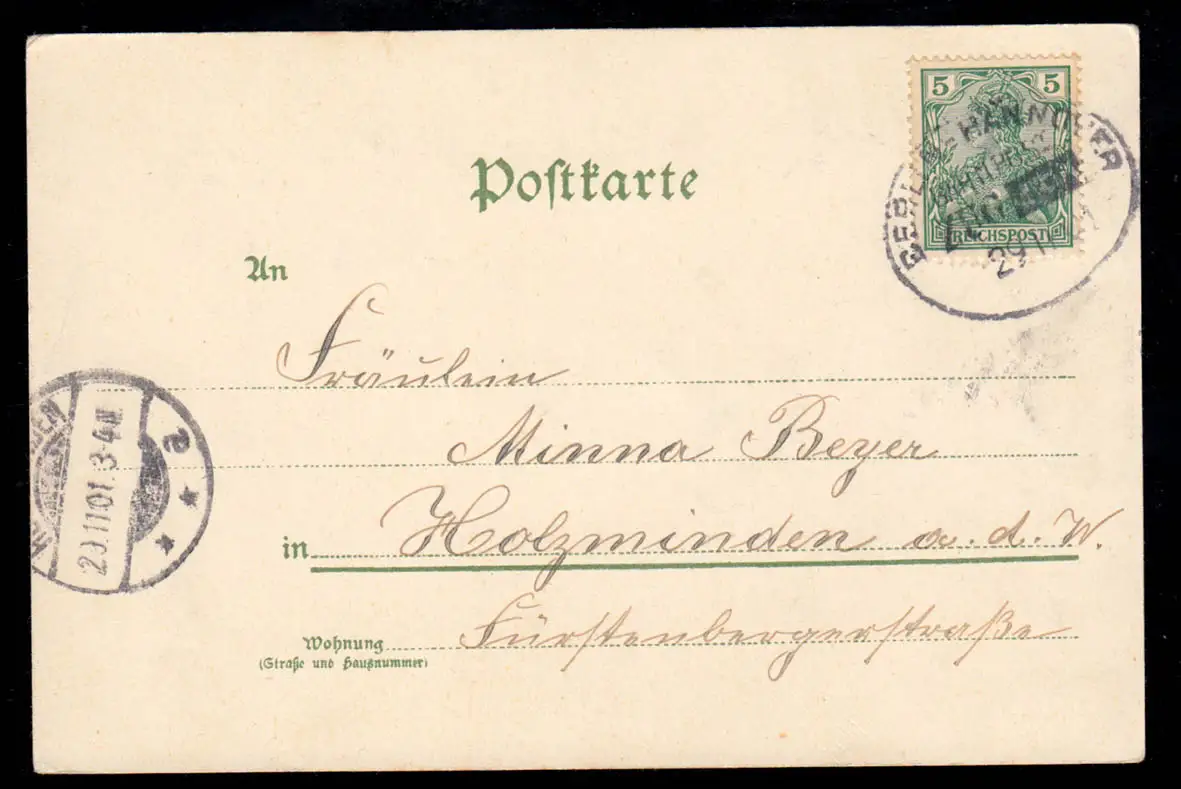 5 5
REICHSPOST
HANNOVER
BAHNPOST
ZUG
29 11
Postkarte
An
Fräulein
Minna Beyer
in Holzminden a. d. W.
Wohnung Fürstenbergerstraße
(Straße und Hausnummer)
29.11.01. 3-4N
2